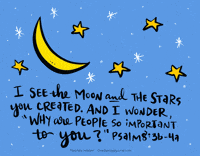 I SEE the MOON and THE STARS
you CREATED. AND I WONDER,
"WHY are PEOPLE SO IMPORTANT
to you?" PSALMS 8:3b-4a